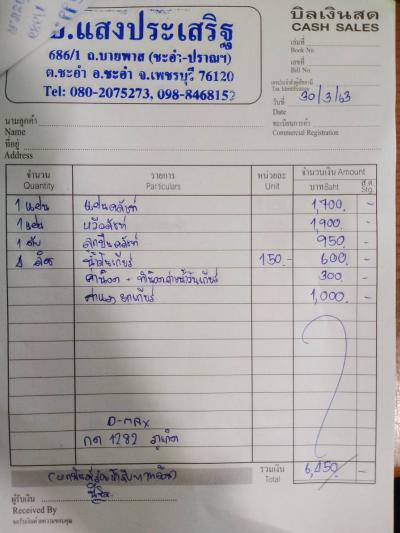 ช.แสงประเสริฐ
686/1 ถ.บายพาส (ชะอำ-ปราณฯ)
ต.ชะอำ อ.ชะอำ จ.เพชรบุรี 76120
Tel: 080-2075273, 098-8468152
บิลเงินสด
CASH SALES
เล่มที่
Book No.
เลขที่
Bill No.
เลขประจำตัวผู้เสียภาษี
Tax Identification
วันที่ 30/3/63
Date
ทะเบียนการค้า
Commercial Registration
นามลูกค้า
Name
ที่อยู่
Address
จำนวน รายการ หน่วยละ จำนวนเงิน Amount
Quantity Particulars Unit บาท Baht ส.ต. Stg.
1 แผ่น แผ่นคลัทช์ 1,700. -
1 แผ่น หวีคลัทช์ 1,900 -
1 ลูกปืนคลัทช์ 950 -
4 ลิตร น้ำมันเกียร์ 150.- 600. -
300. -
ค่าแรง ยกเกียร์ 1,000. -
D-MAX
กต 1282 ภูเก็ต
รวมเงิน 6,450 -
Total
ผู้รับเงิน
Received By
ขอรับเงินด้วยความขอบคุณ